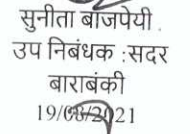 सुनीता बाजपेयी .
उप निबंधक :सदर
बाराबंकी
19/03/2021